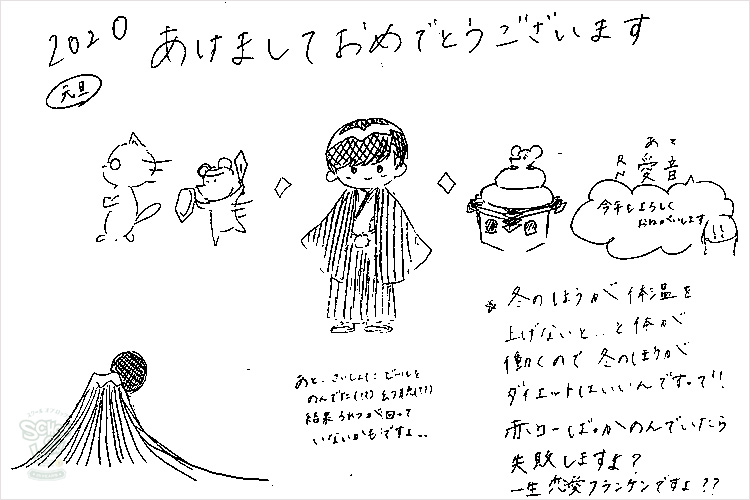 2020 あけましておめでとうございます
元旦
あと
RN 愛音
今年もよろしく
おねがいします
!!
※冬のほうが体温を
上げないと..と体が
働くので冬のほうが
ダイエットはいいんですって!
赤ワインばっかのんでいたら
失敗しますよ?
一生恋愛フランケンですよ??
あと、さいしょに ビールを
のんでた(!?)
結果 ろれつが回って
いないかもですよ..